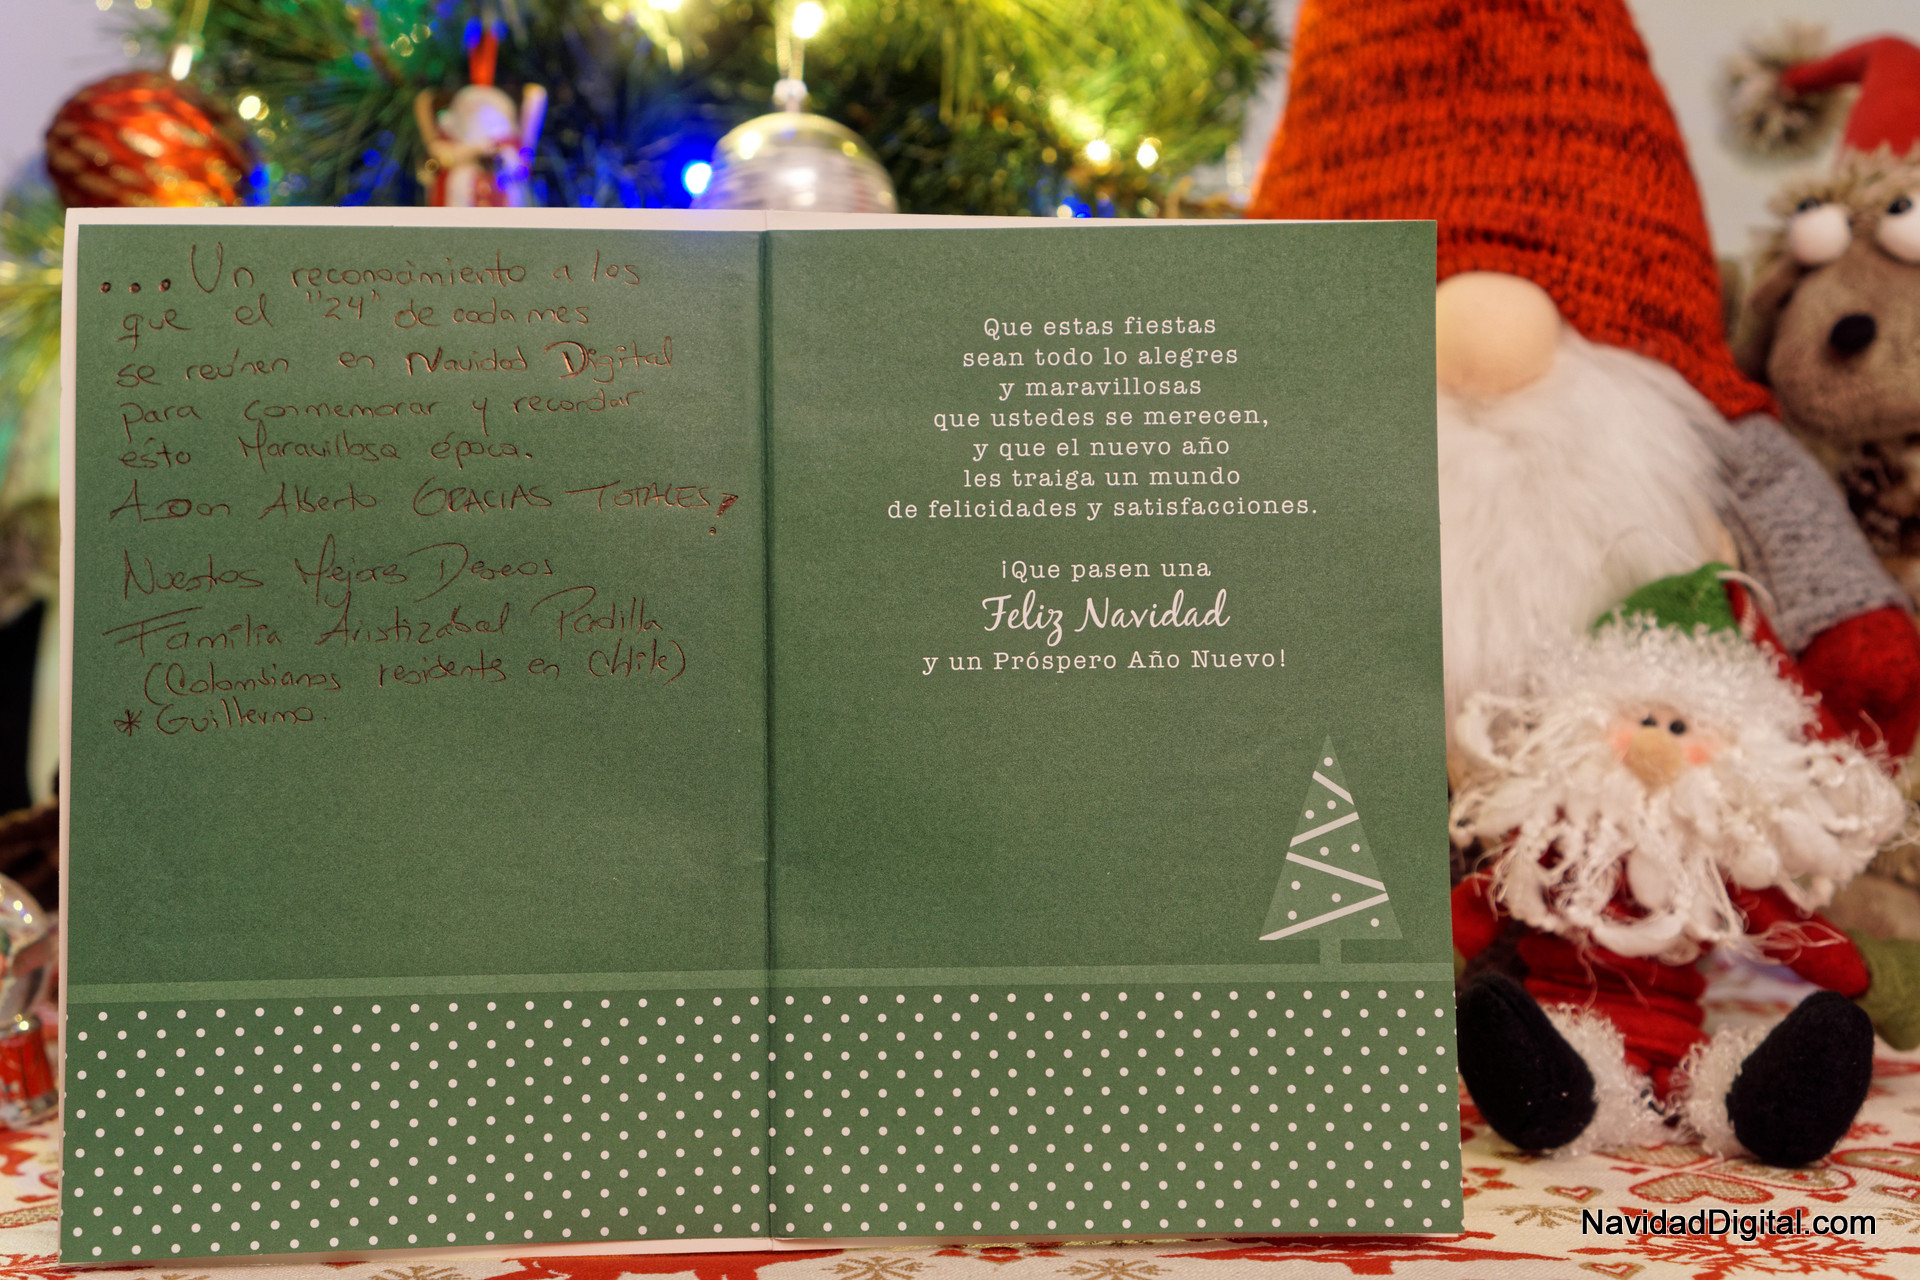 ...Un reconocimiento a los
que el "24" de cada mes
se reúnen en Navidad Digital
para conmemorar y recordar
esta Maravillosa época.
A Don Alberto GRACIAS TOTALES!
Nuestros Mejores Deseos
Familia Aristizabal Padilla
(Colombianos residentes en Chile)
* Guillermo.
Que estas fiestas
sean todo lo alegres
y maravillosas
que ustedes se merecen,
y que el nuevo año
les traiga un mundo
de felicidades y satisfacciones.
¡Que pasen una
Feliz Navidad
y un Próspero Año Nuevo!
NavidadDigital.com